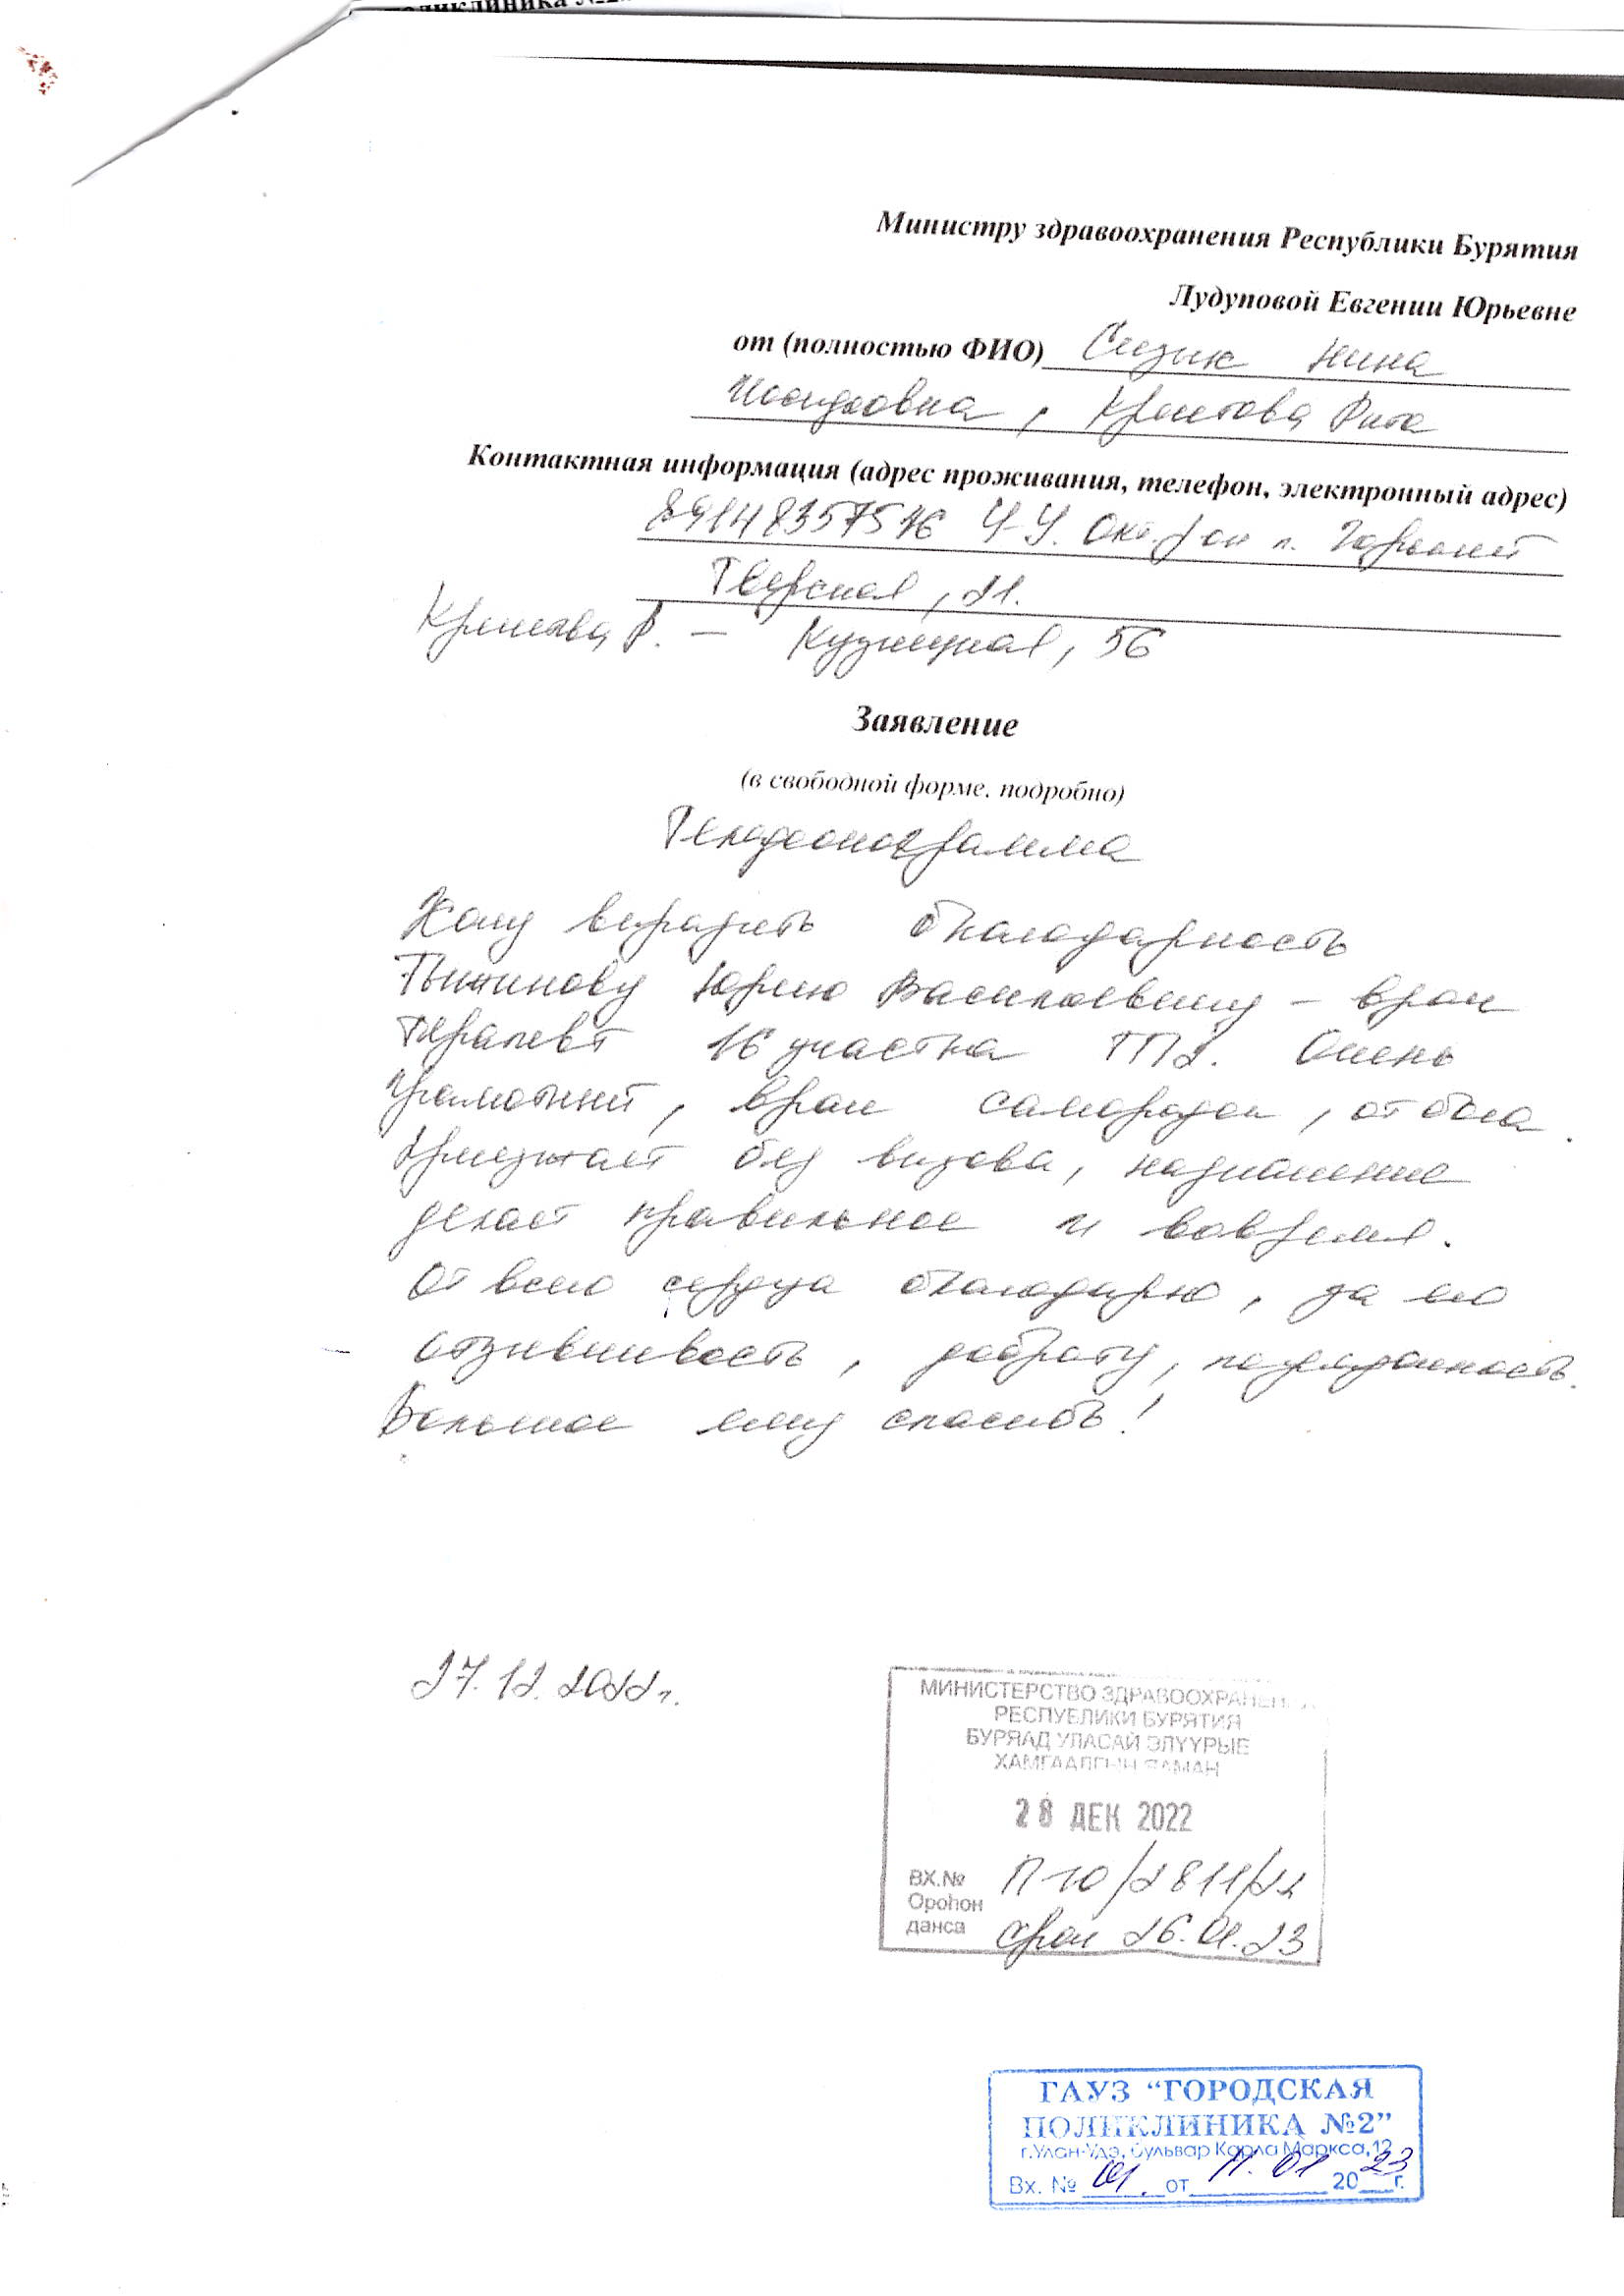 поликлиника №2
Министру здравоохранения Республики Бурятия
Лудуповой Евгении Юрьевне
от (полностью ФИО) Сизык Нина
Иосифовна, Рита
Контактная информация (адрес проживания, телефон, электронный адрес)
У-У. Окт. р-он п. Горький
Тверская, 21.
Р. – Кузнецкая, 56
Заявление
(в свободной форме, подробно)
Телефонограмма
Хочу выразить благодарность
Тыхинову Юрию Васильевичу – врач
терапевт 16 участка ГП2. Очень
грамотный, врач самородок, от бога.
Приезжает без вызова, назначение
делает правильное и вовремя.
От всего сердца благодарю, за его
отзывчивость, доброту, порядочность.
Большое ему спасибо!
27.12.2022г.
МИНИСТЕРСТВО ЗДРАВООХРАНЕНИЯ
РЕСПУБЛИКИ БУРЯТИЯ
БУРЯАД УЛАСАЙ ЭЛҮҮРЫЕ
ХАМГААЛГЫН ЯАМАН
28 ДЕК 2022
ВХ.№ П10/2811/22
Ороһон
данса срок 26.01.23
ГАУЗ “ГОРОДСКАЯ
ПОЛИКЛИНИКА №2”
г.Улан-Удэ, бульвар Карла Маркса,12
Вх. № 01. от 11.01 2023г.